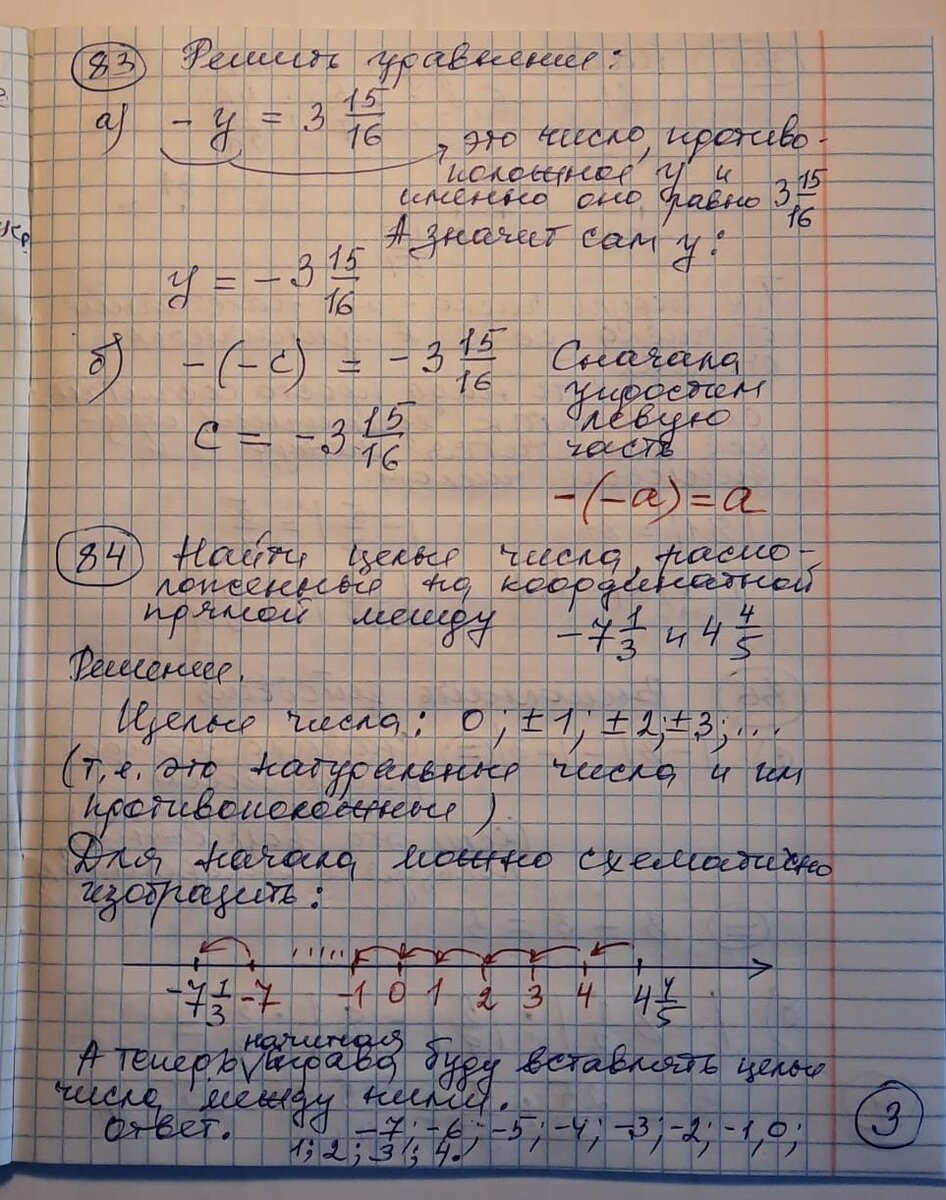 83 Решить уравнение:
а) - y = 3 15/16
это число, противо-
положное y и
именно оно равно 3 15/16
А значит сам y:
y = - 3 15/16
б) - (- c) = - 3 15/16
Сначала
упростим
левую
часть
c = - 3 15/16
-(-a) = a
84 Найти целые числа, распо-
ложенные на координатной
прямой между -7 1/3 и 4 4/5
Решение.
Целые числа: 0; ±1; ±2; ±3; ...
(т.е. это натуральные числа и им
противоположные)
Для начала можно схематично
изобразить:
-7 1/3 -7 -1 0 1 2 3 4 4 4/5
А теперь, начиная справа буду вставлять целые
числа между ними.
Ответ. -7; -6; -5; -4; -3; -2; -1, 0;
1; 2; 3; 4.
3